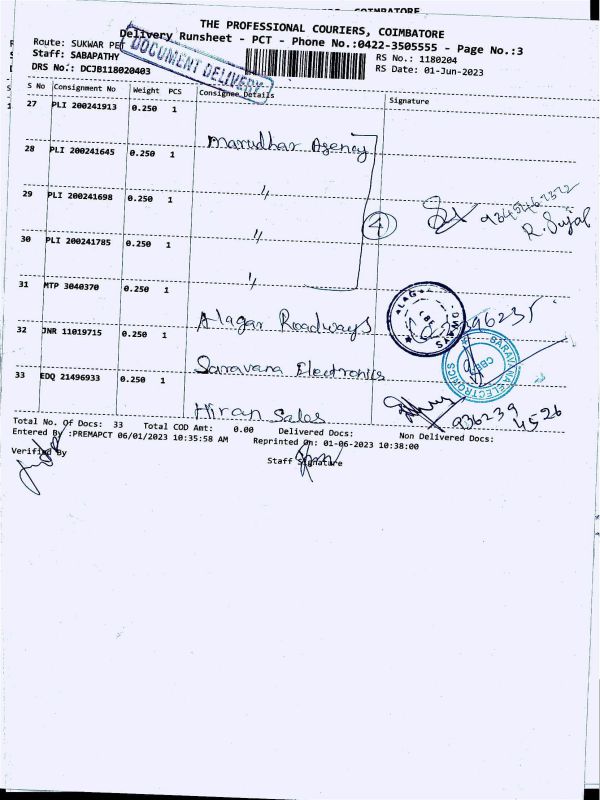 THE PROFESSIONAL COURIERS, COIMBATORE
Delivery Runsheet - PCT - Phone No.:0422-3505555 - Page No.:3
Route: SUKWAR PET
RS No.: 1180204
Staff: SABAPATHY
RS Date: 01-Jun-2023
DRS No.: DCJB118020403
DOCUMENT DELIVERY
S No Consignment No Weight PCS Consignee Details Signature
27 PLI 200241913 0.250 1
Marudhar Agency
28 PLI 200241645 0.250 1
"
29 PLI 200241698 0.250 1
"
30 PLI 200241785 0.250 1
"
4
R. Sujal
31 MTP 3040370 0.250 1
Alagar Roadways
32 JNR 11019715 0.250 1
Saravana Electronics
SARAVANA ELECTRONICS
33 EDQ 21496933 0.250 1
Hiran Sales
936239
4526
Total No. Of Docs: 33 Total COD Amt: 0.00 Delivered Docs: Non Delivered Docs:
Entered By :PREMAPCT 06/01/2023 10:35:58 AM Reprinted On: 01-06-2023 10:38:00
Verified By
Staff Signature